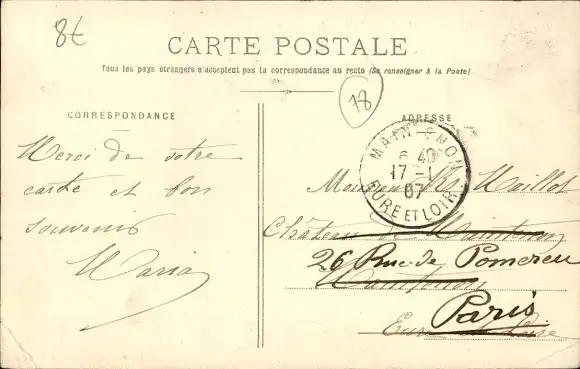 8€
CARTE POSTALE
Tous les pays étrangers n'acceptent pas la correspondance au recto (Se renseigner à la Poste)
78
CORRESPONDANCE
Merci de votre
carte et bon
souvenir
Maria
ADRESSE
MAINTENON
6 40
17 - 1
07
EURE ET LOIR
Monsieur Maillot
Château de Maintenon
26 Rue de Pomereu
Maintenon
Paris
Eure Loir